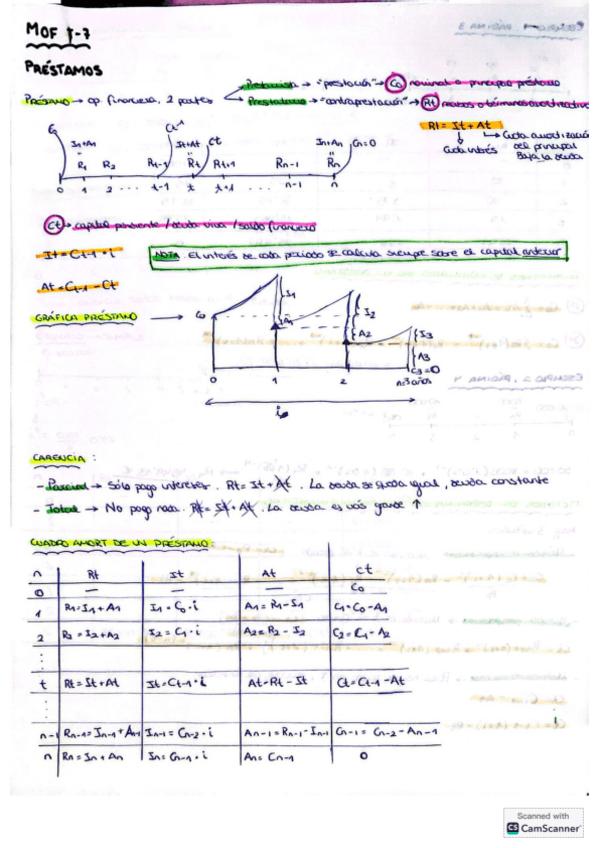 MOF T-7
PRÉSTAMOS
PRÉSTAMO → op. financiera, 2 partes
Prestamista → "prestación" → C0 nominal o principal préstamo
Prestatario → "contraprestación" → Rt
Rt = It + At
Cuota interés
Cuota amortización del principal
Baja la deuda
C0 I1+A1 Ct-1 It+At Ct In+An Cn=0
R1 R2 Rt-1 Rt Rt+1 Rn-1 Rn
0 1 2 ... t-1 t t+1 ... n-1 n
Ct → capital pendiente / deuda viva / saldo financiero
It = Ct-1 · i
NOTA. El interés de cada periodo se calcula siempre sobre el capital anterior
At = Ct-1 - Ct
GRÁFICA PRÉSTAMO →
C0 I1 A1 I2 A2 I3 A3 C3=0
0 1 2 n=3 años
CARENCIA :
- Parcial → Sólo pago intereses. Rt = It + At. La deuda se queda igual, deuda constante
- Total → No pago nada. Rt = It + At. La deuda es más grande ↑
CUADRO AMORT DE UN PRÉSTAMO:
n Rt It At Ct
0 — — — C0
1 R1 = I1 + A1 I1 = C0 · i A1 = R1 - I1 C1 = C0 - A1
2 R2 = I2 + A2 I2 = C1 · i A2 = R2 - I2 C2 = C1 - A2
t Rt = It + At It = Ct-1 · i At = Rt - It Ct = Ct-1 - At
n-1 Rn-1 = In-1 + An-1 In-1 = Cn-2 · i An-1 = Rn-1 - In-1 Cn-1 = Cn-2 - An-1
n Rn = In + An In = Cn-1 · i An = Cn-1 0
Scanned with
CS CamScanner